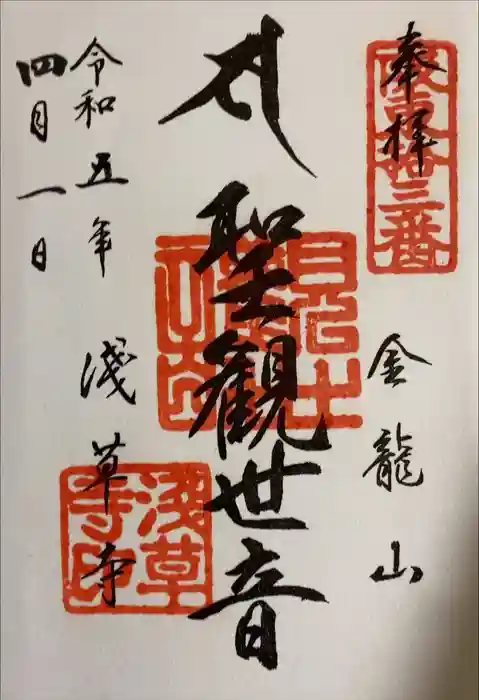 奉拝
坂東拾三番
金龍山
聖観世音
浅草寺印
淺草寺
令和五年
四月一日